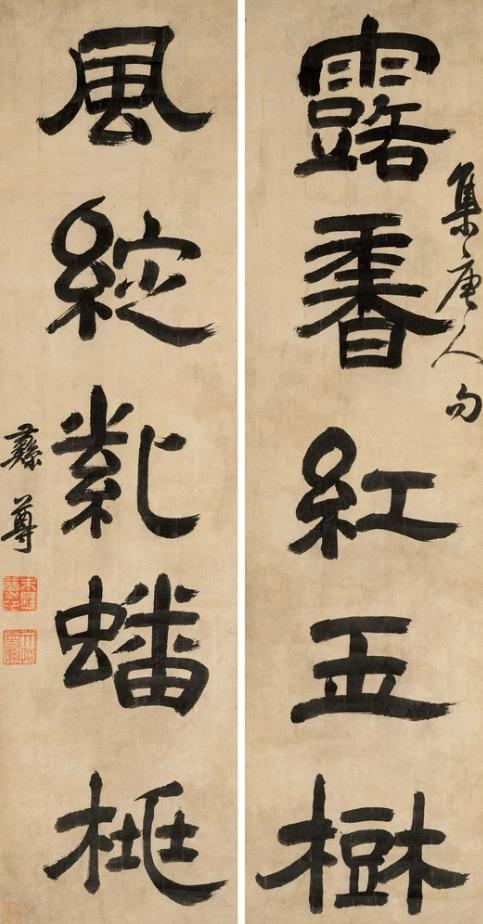 集唐人句
露香紅玉樹
風綻紫蟠桃
彝尊
朱彝尊印